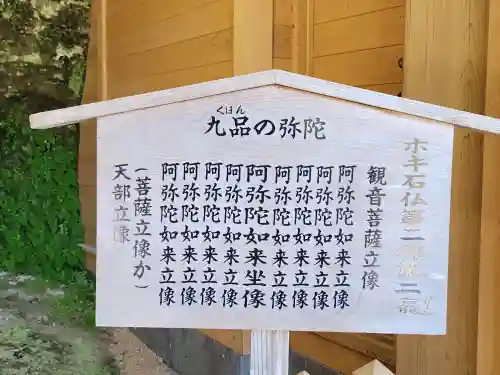 くほん
九品の弥陀
ホキ石仏第二群第二龕
観音菩薩立像
阿弥陀如来立像
阿弥陀如来立像
阿弥陀如来立像
阿弥陀如来立像
阿弥陀如来坐像
阿弥陀如来立像
阿弥陀如来立像
阿弥陀如来立像
阿弥陀如来立像
(菩薩立像か)
天部立像